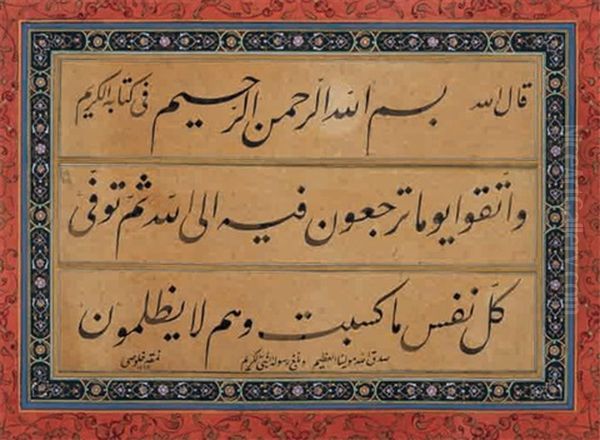 قال الله بسم الله الرحمن الرحيم في كتابه الكريم
واتّقوا يوما ترجعون فيه الى الله ثمّ توفّى
كلّ نفس ما كسبت وهم لا يظلمون
صدق الله مولينا العظيم وبلغ رسوله النبى الكريم
نمقه خلوصى